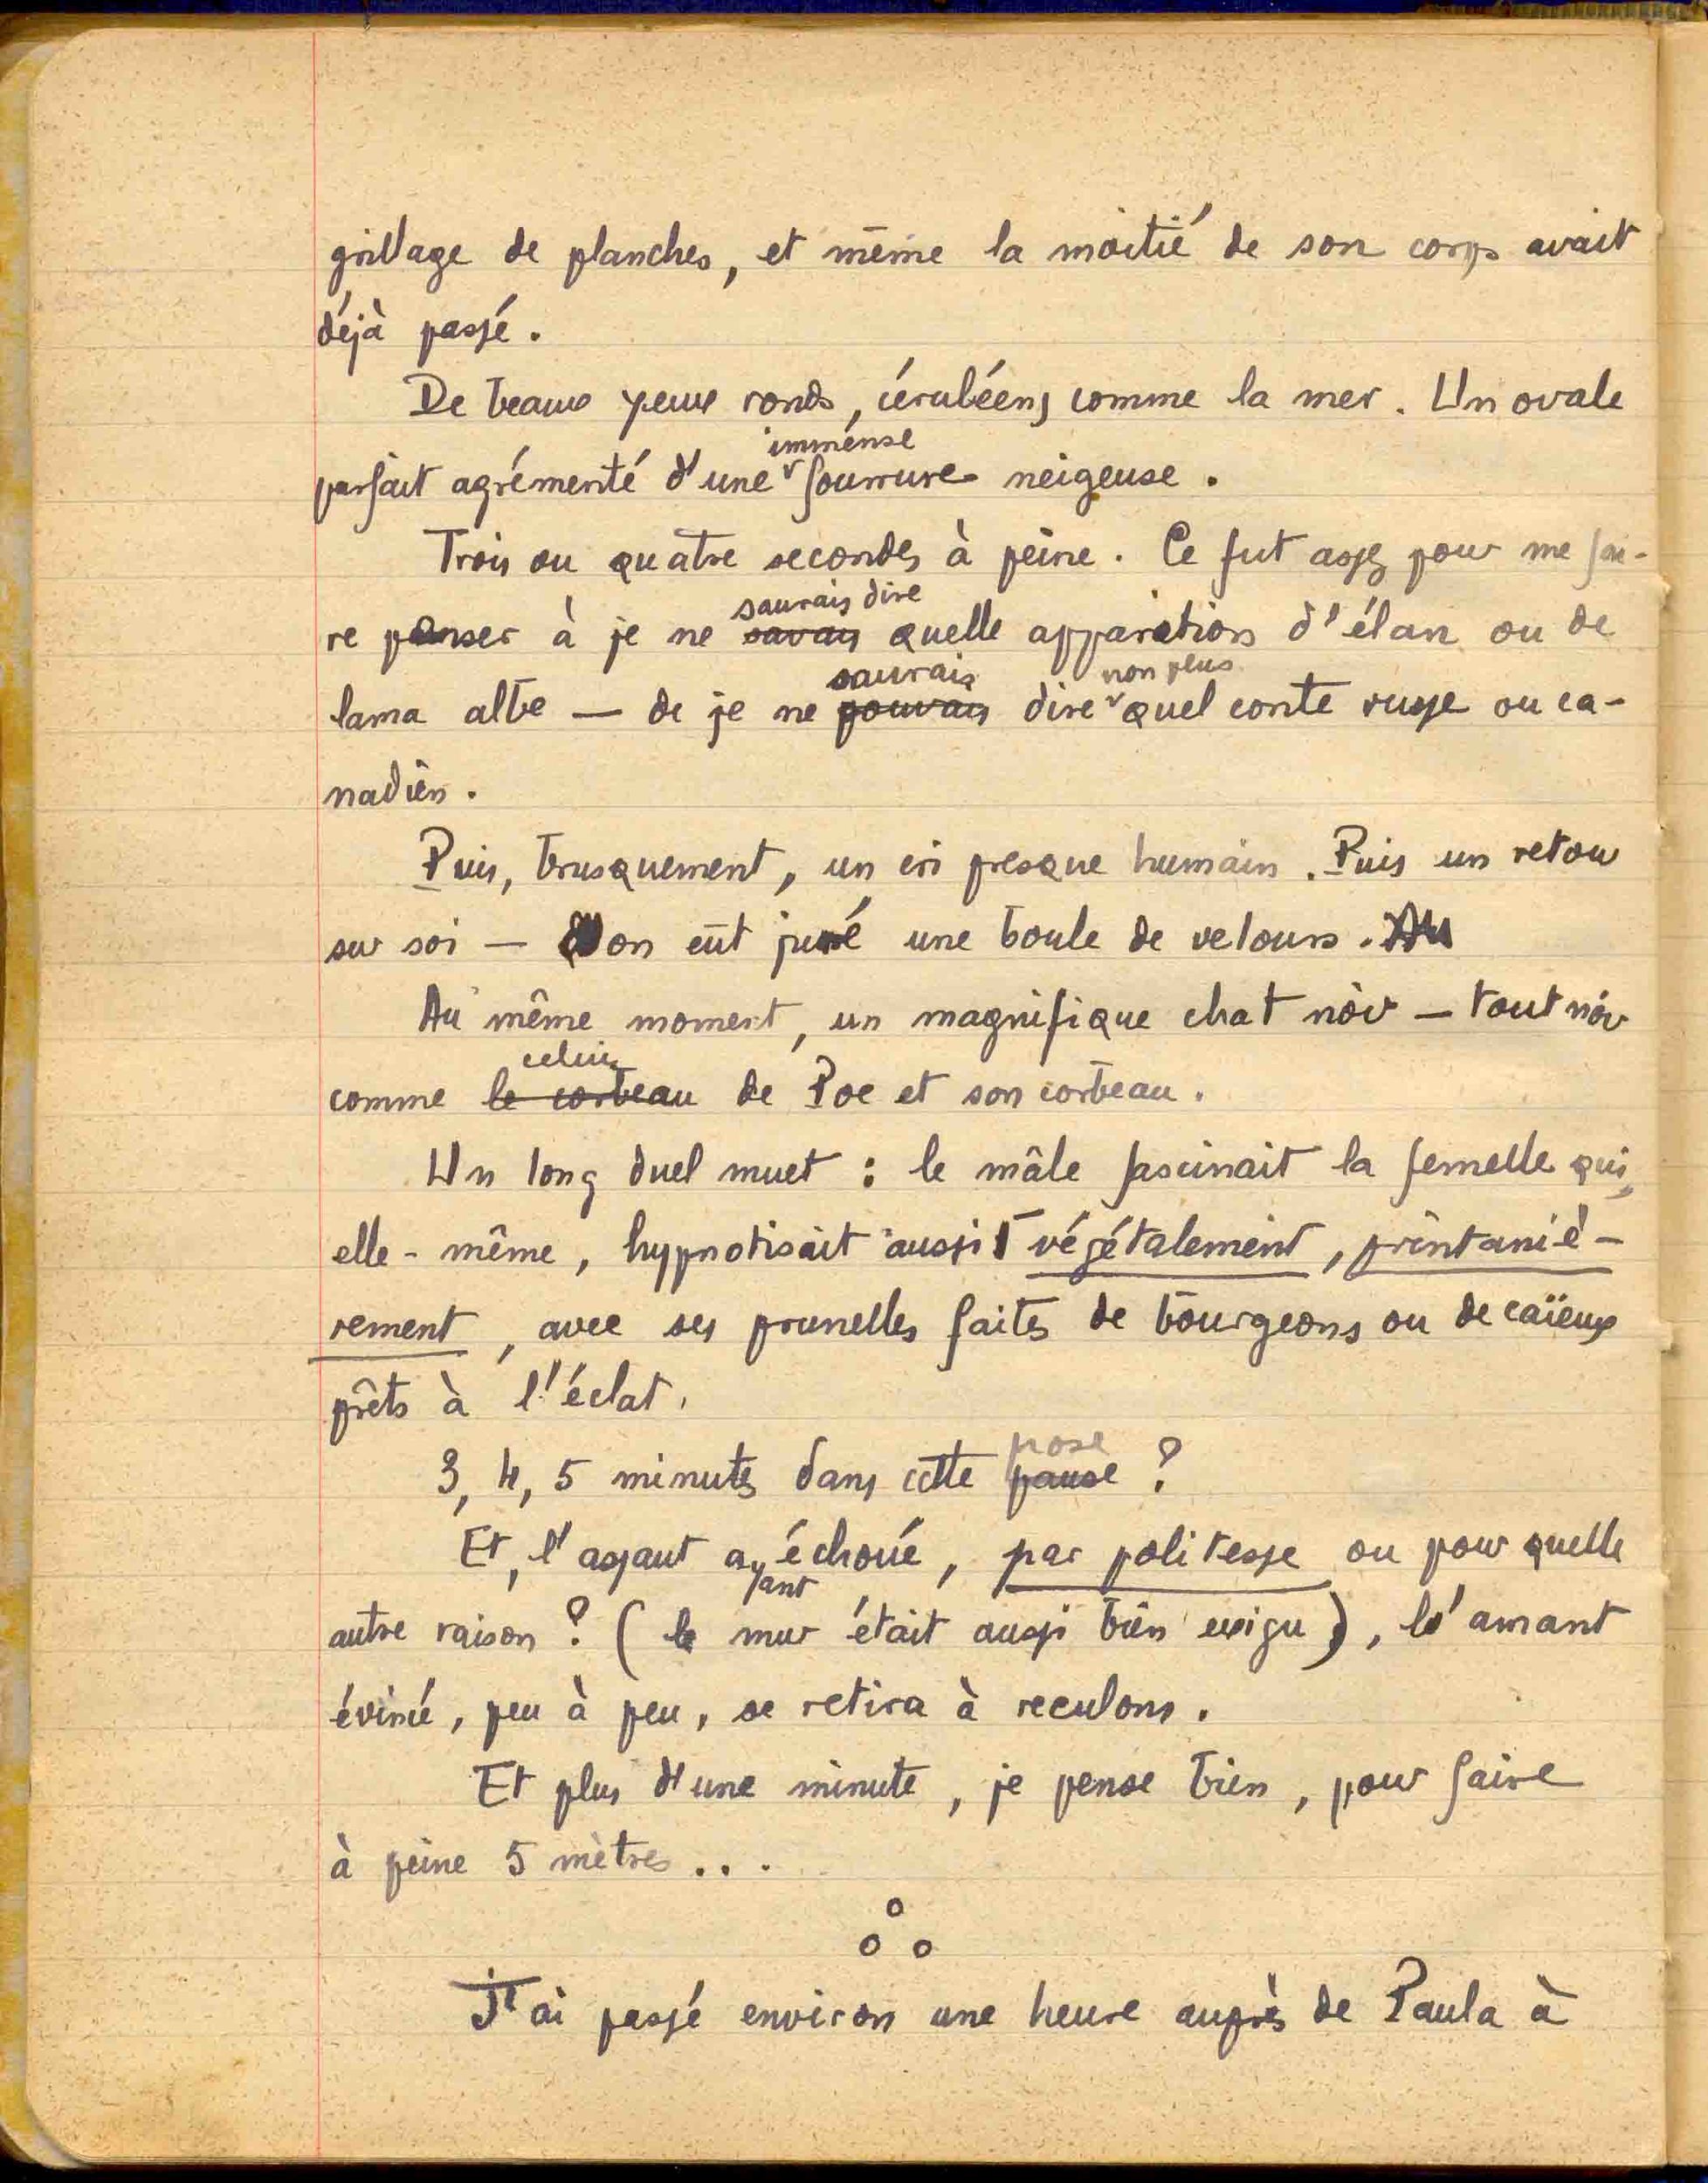 grillage de planches, et même la moitié de son corps avait
déjà passé.
De beaux yeux ronds, céruléens comme la mer. Un ovale
immense
parfait agrémenté d'une fourrure neigeuse.
Trois ou quatre secondes à peine. Ce fut assez pour me fai-
saurais dire
re penser à je ne savais quelle apparition d'élan ou de
saurais non plus
lama albe — de je ne pouvais dire quel conte russe ou ca-
nadien.
Puis, brusquement, un cri presque humain. Puis un retour
sur soi — on eût juré une boule de velours. Au
Au même moment, un magnifique chat noir — tout noir
celui
comme le corbeau de Poe et son corbeau.
Un long duel muet : le mâle fascinait la femelle qui,
elle-même, hypnotisait aussi végétalement, printaniè-
rement, avec ses prunelles faites de bourgeons ou de caïeux
prêts à l'éclat.
pose
3, 4, 5 minutes dans cette pause ?
Et, l'assaut ayant échoué, par politesse ou pour quelle
autre raison ? (le mur était aussi bien exigu), l'amant
évincé, peu à peu, se retira à reculons.
Et plus d'une minute, je pense bien, pour faire
à peine 5 mètres...
J'ai passé environ une heure auprès de Paula à